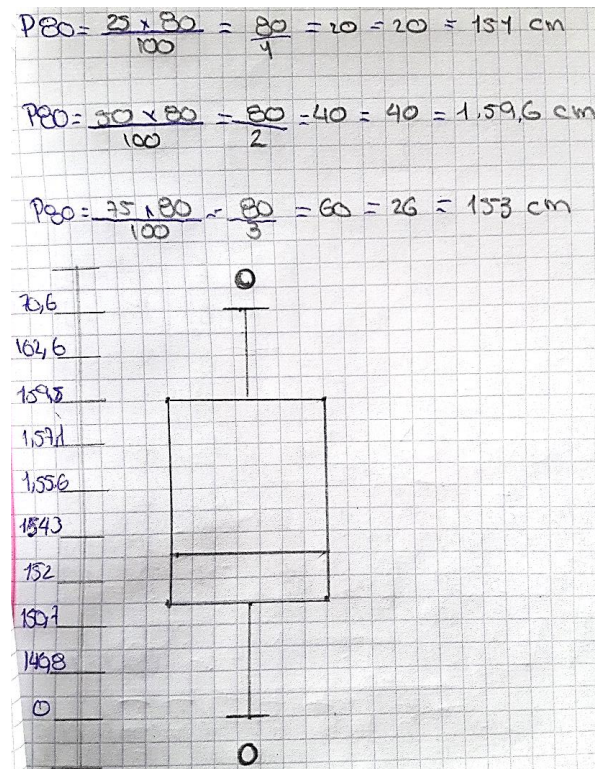 P80 = 25 x 80 / 100 = 80 / 4 = 20 = 20 = 151 cm
P80 = 50 x 80 / 100 = 80 / 2 = 40 = 40 = 1.59,6 cm
P80 = 75 x 80 / 100 = 80 / 3 = 60 = 26 = 153 cm
70,6
162,6
159,5
1,57,1
1,55,6
154,3
152
150,1
146,8
0